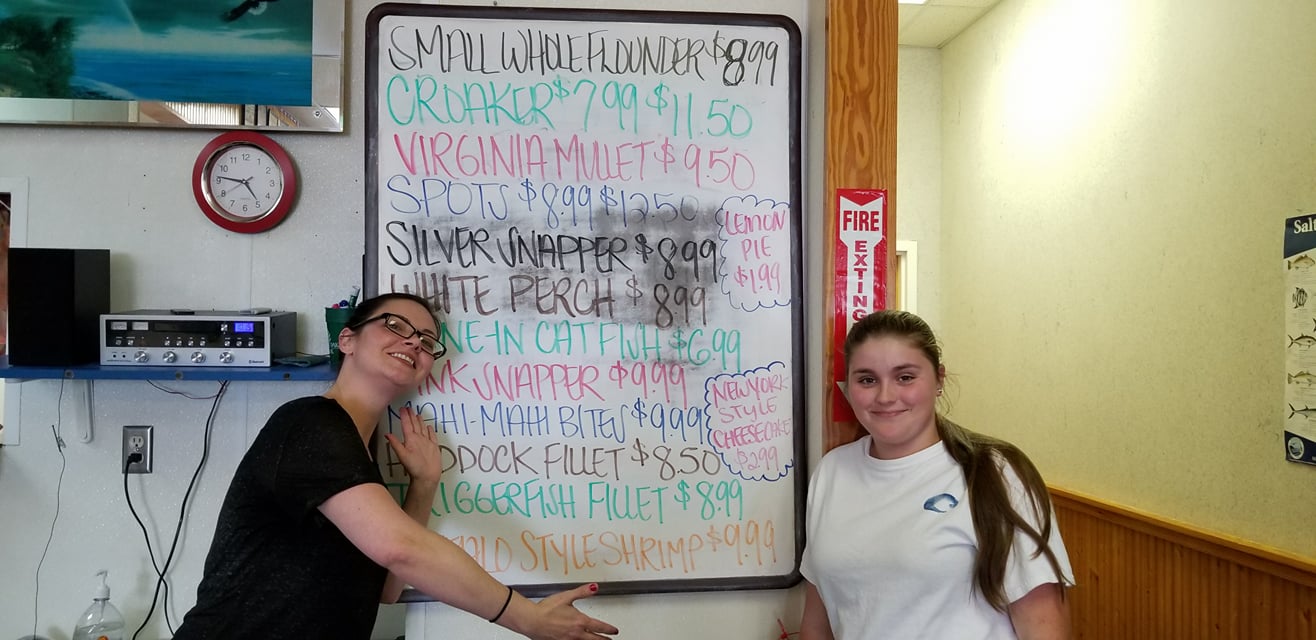 SMALL WHOLE FLOUNDER $8.99
CROAKER $7.99 $11.50
VIRGINIA MULLET $9.50
SPOTS $8.99 $12.50
SILVER SNAPPER $8.99
WHITE PERCH $8.99
NE-IN CATFISH $6.99
NK SNAPPER $9.99
MAHI-MAHI BITES $9.99
DDOCK FILLET $8.50
TRIGGERFISH FILLET $8.99
STYLE SHRIMP $9.99
LEMON
PIE
$1.99
NEW YORK
STYLE
CHEESECAKE
$2.99
12
1
2
3
4
5
6
7
8
9
10
11
FIRE
EXTING
Salt